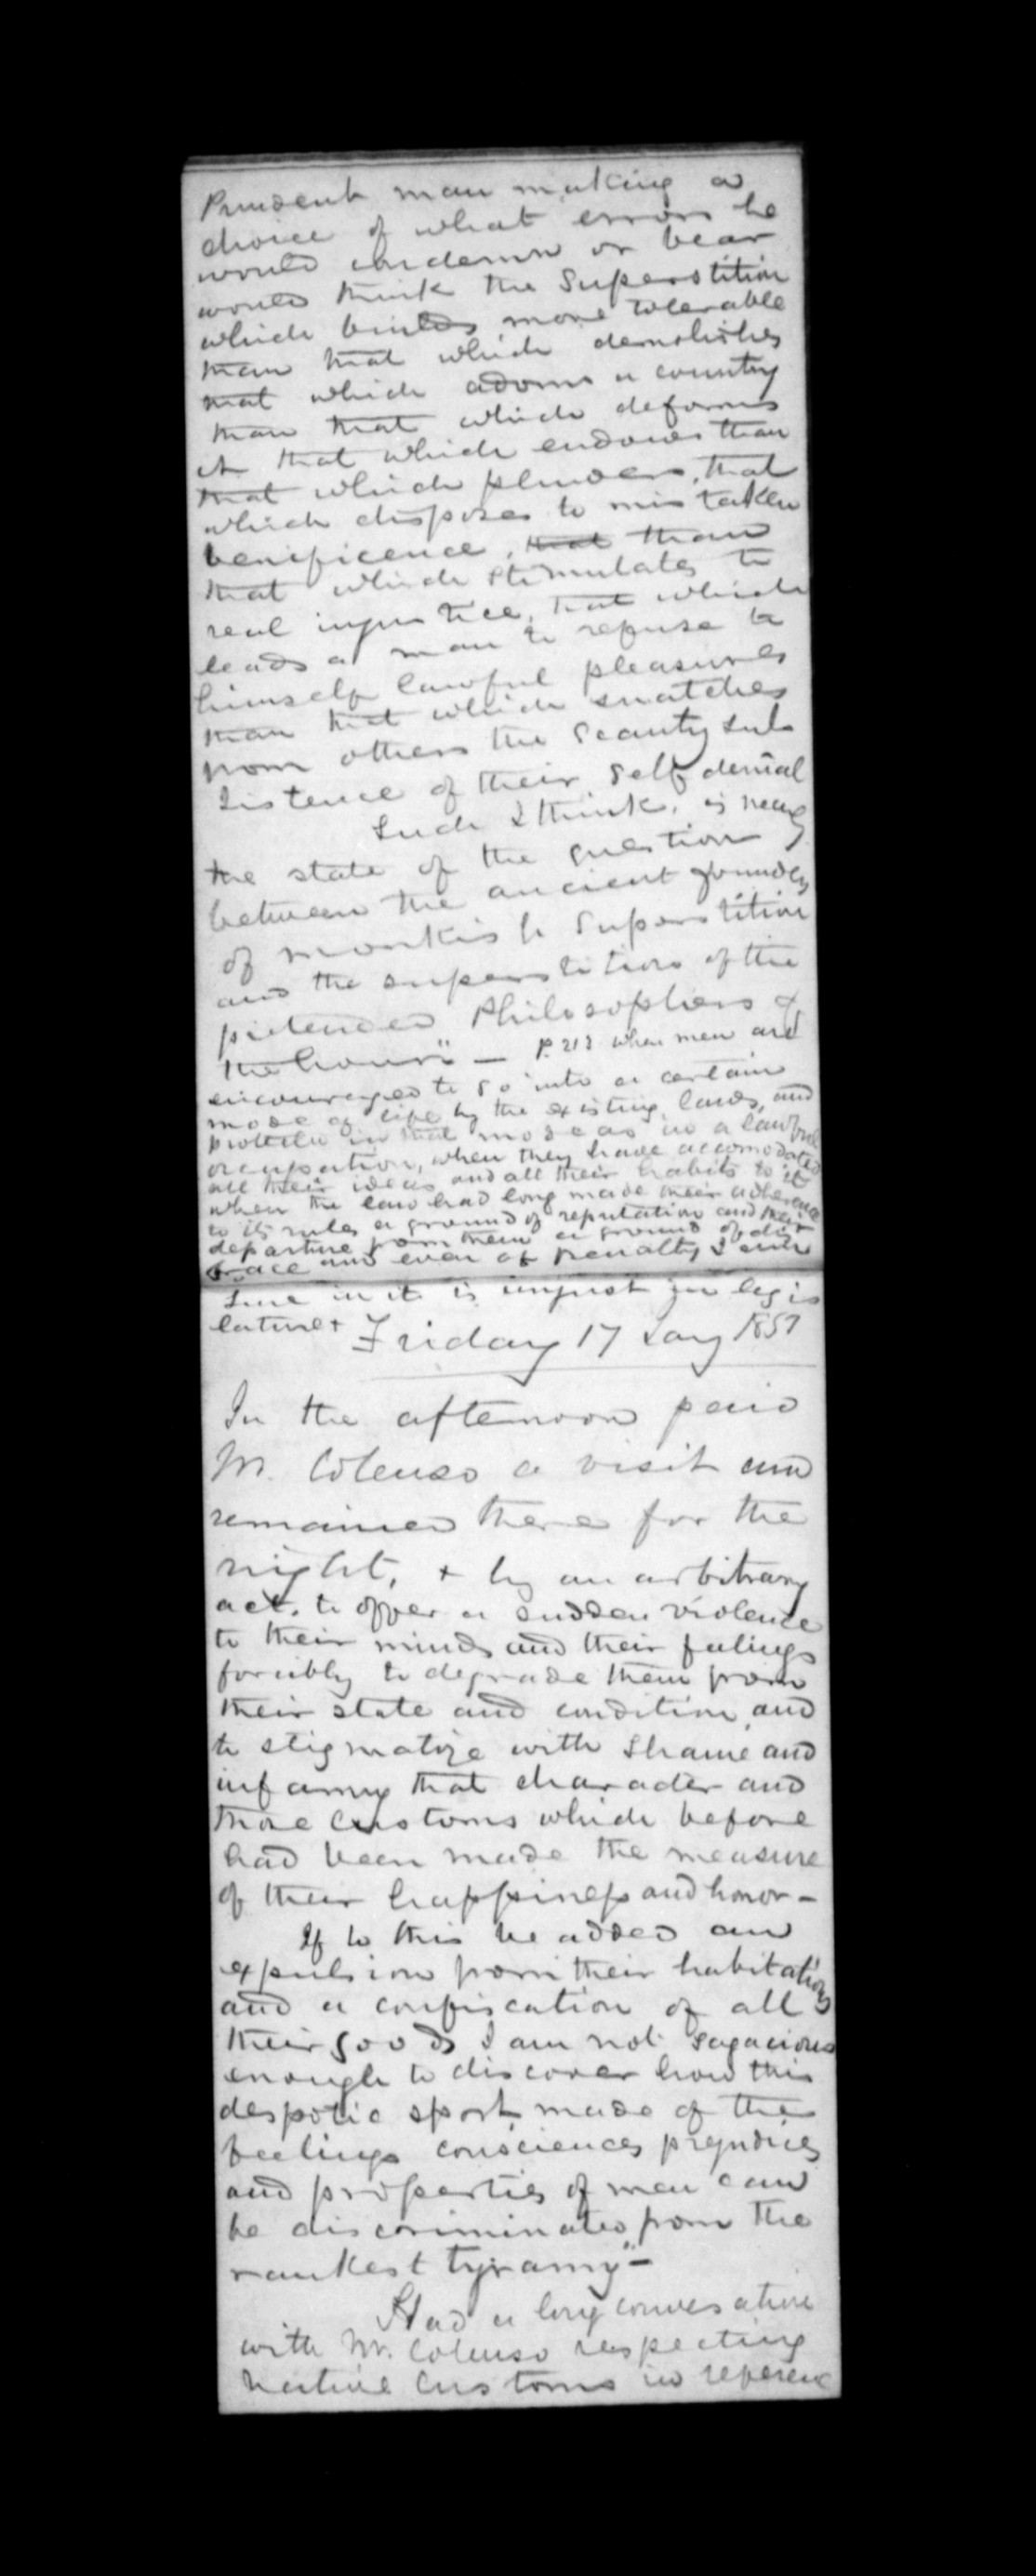 Prudent man making a
choice of what errors he
would condemn or bear
would think the Superstition
which builds more tolerable
than that which demolishes
that which adorns a country
than that which deforms
it that which endows than
that which plunders, that
which disposes to mistaken
benificence, that than
that which stimulates to
real injustice, that which
leads a man to refuse to
himself lawful pleasures
than that which snatches
from others the scanty sub
sistence of their self denial
Such I think, is nearly
the state of the question
between the ancient founders
of monkish Superstition
and the superstition of the
pretended Philosophers of
the hour" — P. 213 when men are
encouraged to go into a certain
mode of life by the existing laws, and
protected in that mode as in a lawful
occupation, when they have accomodated
all their ideas and all their habits to it
when the law had long made their adherence
to its rules a ground of reputation and their
departure from them a ground of dis
grace and even of penalty I am
sure in it is unjust in legis
lature +
Friday 17 1857
In the afternoon paid
Mr. Colenso a visit and
remained there for the
night, + by an arbitrary
act. to offer a sudden violence
to their minds and their feelings
forcibly to degrade them from
their state and condition, and
to stigmatize with shame and
infamy that character and
those customs which before
had been made the measure
of their happiness and honor -
If to this be added an
expulsion from their habitations
and a confiscation of all
their goods I am not sagacious
enough to discover how this
despotic sport made of the
feelings consciences prejudices
and properties of men can
be discriminated from the
rankest tyranny" -
Had a long conversation
with Mr. Colenso respecting
native customs in referenc